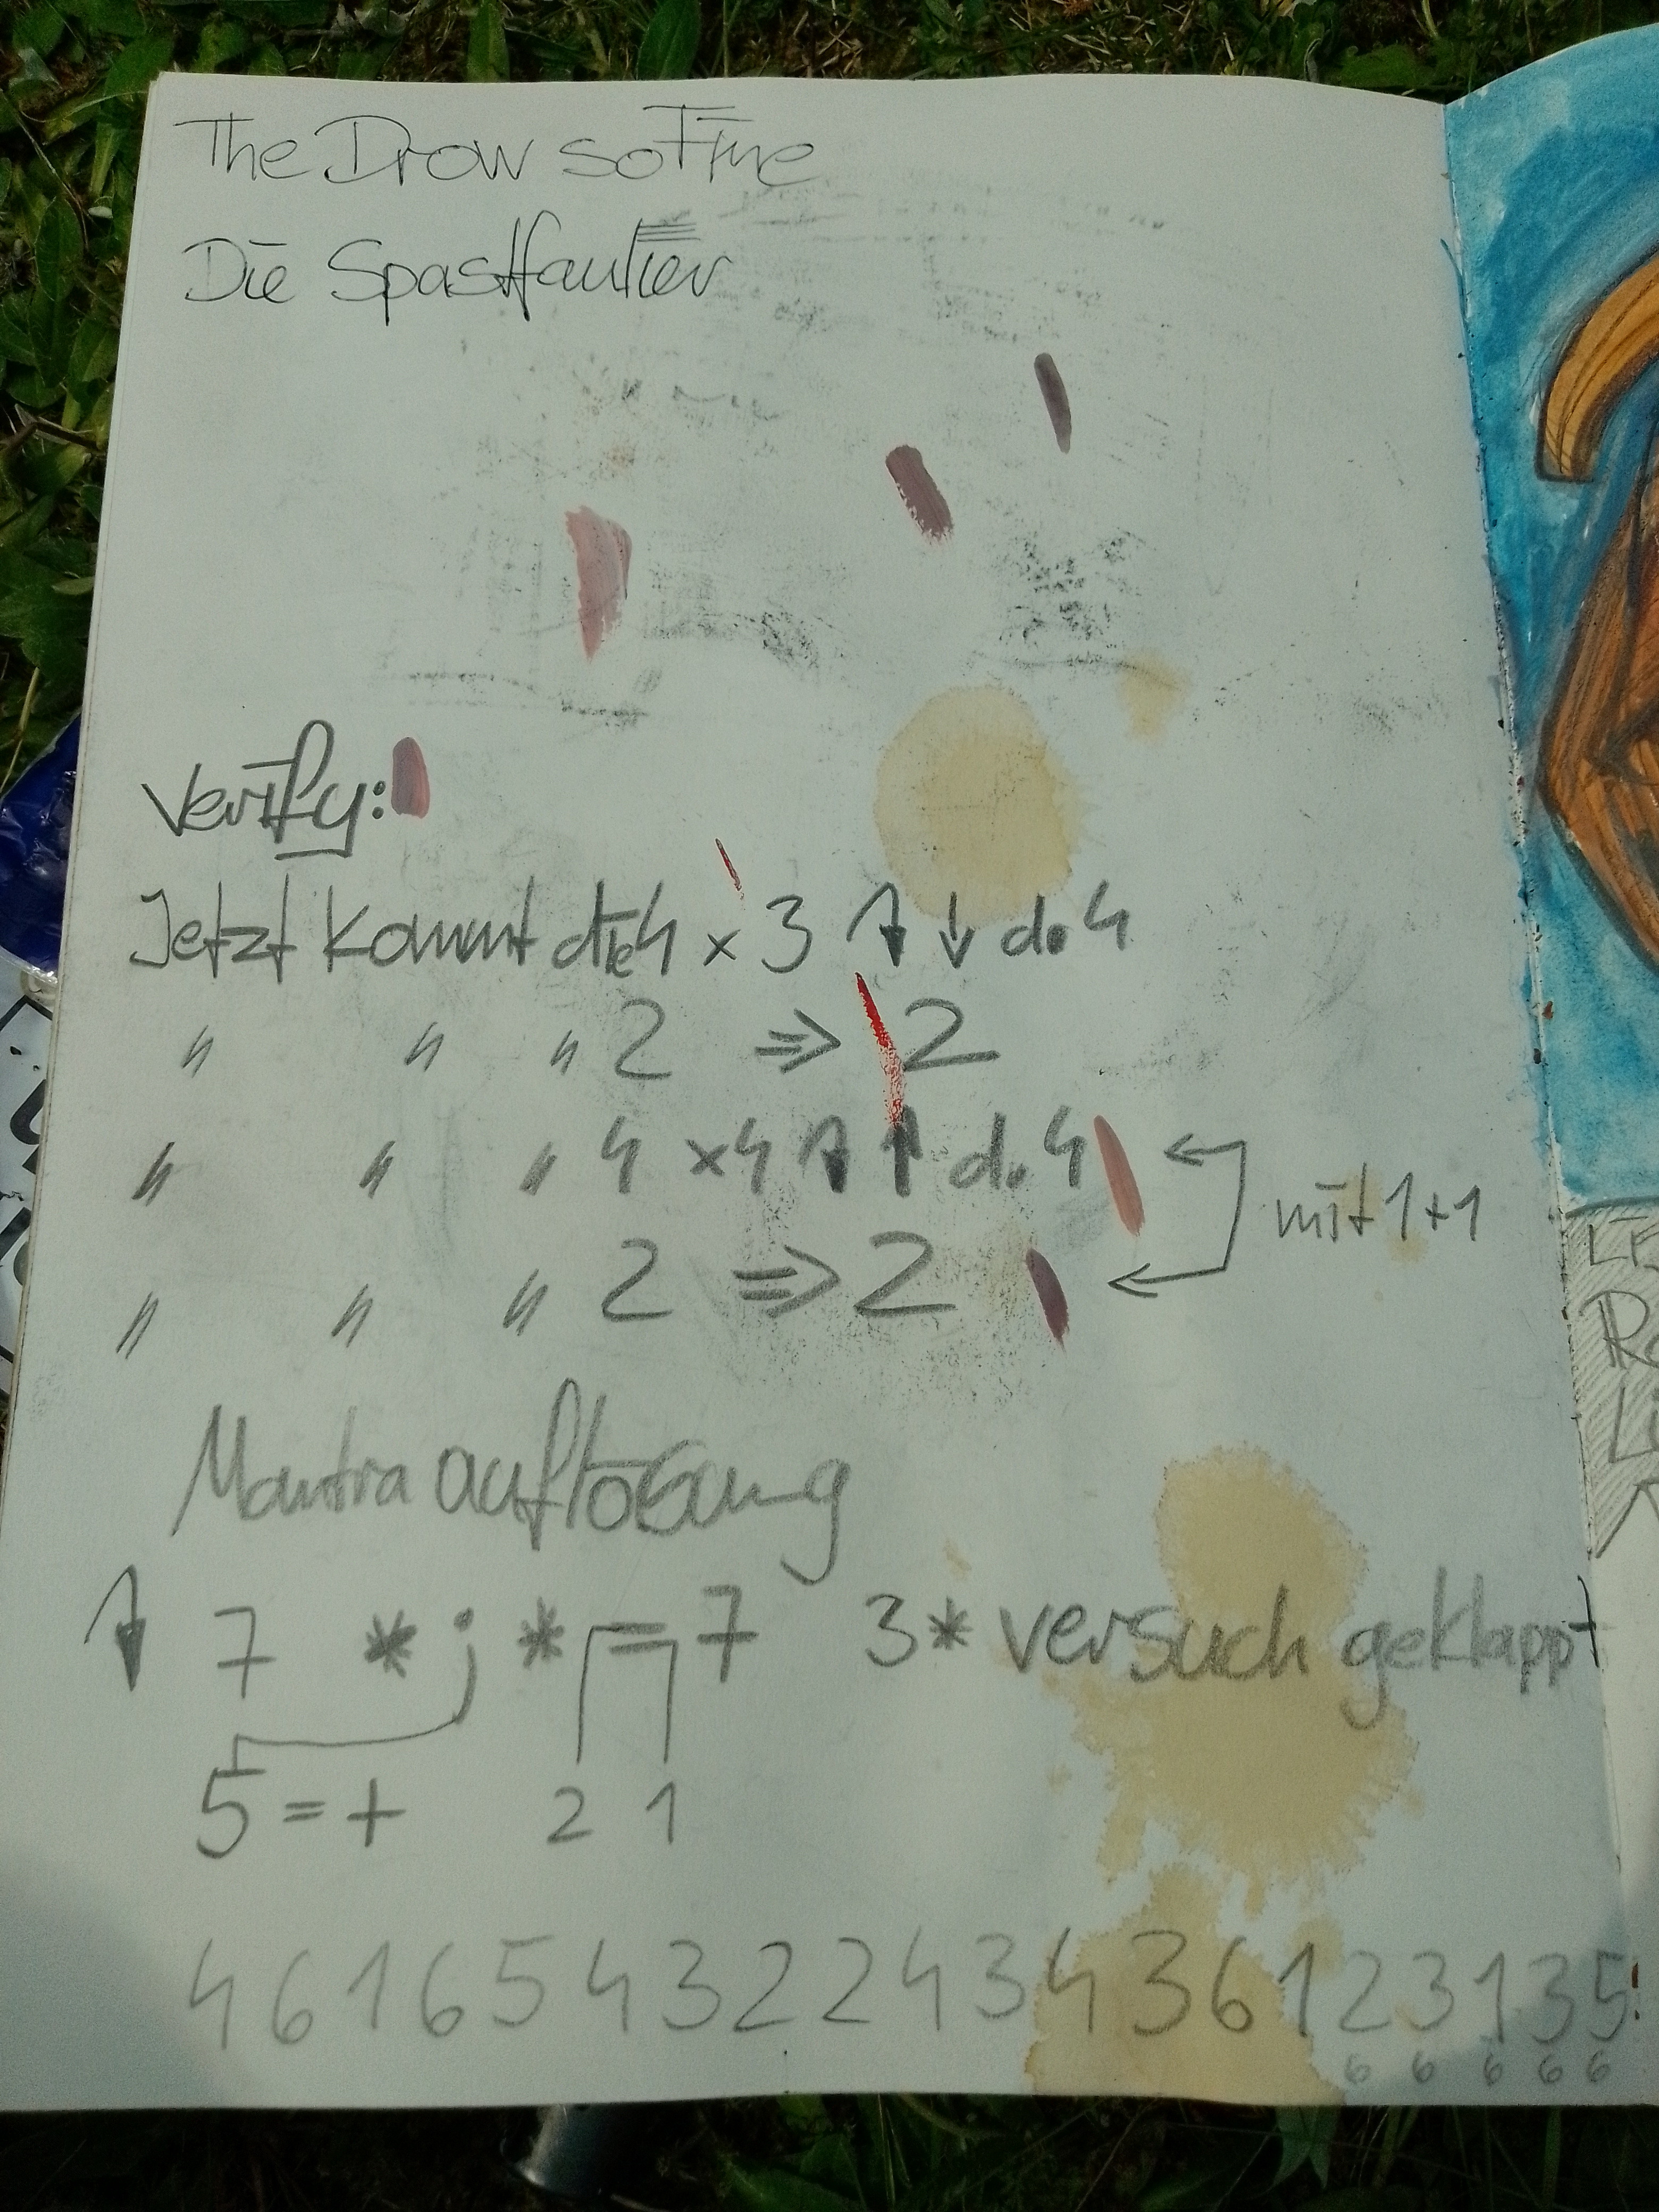 The Drow so Fine
Die Spastfautier
Verify:
Jetzt kommt die 4 x 3 ↑ ↓ do 4
" " " 2 => 2
" " " 4 x4 ↑ ↑ do 4
mit 1+1
" " " 2 => 2
Mantra auflösung
7 * j * = 7 3* versuch geklappt
5 = + 2 1
4 6 1 6 5 4 3 2 2 4 3 4 3 6 1 2 3 1 3 5!
6 6 6 6 6